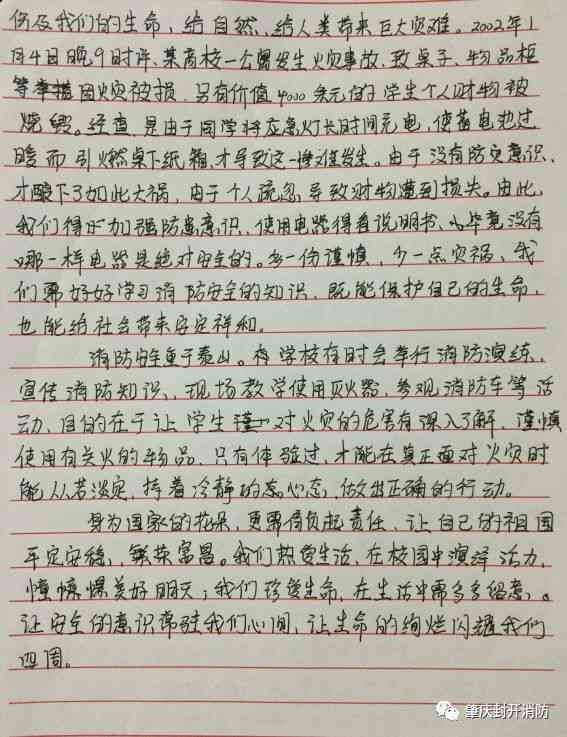 伤及我们的生命，给自然、给人类带来巨大灾难。2002年1
月4日晚9时许，某高校一公寓发生火灾事故，致桌子、物品柜
等因火灾被损，另有价值4000余元的学生个人财物被
烧毁。经查，是由于同学将应急灯长时间充电，使蓄电池过
暖而引燃桌下纸箱，才导致这一惨难发生。由于没有防灾意识，
才酿下了如此大祸，由于个人疏忽，导致财物遭到损失。由此，
我们得加强防患意识，使用电器得看说明书，毕竟没有
哪一样电器是绝对安全的。多一份谨慎，少一点灾祸，我
们需好好学习消防安全的知识，既能保护自己的生命，
也能给社会带来安定祥和。
消防安全重于泰山。有学校有时会举行消防演练、
宣传消防知识、现场教学使用灭火器，参观消防车等活
动，目的在于让学生对火灾的危害有深入了解，谨慎
使用有关火的物品，只有体验过，才能在真正面对火灾时
能从容淡定，持着冷静的心态，做出正确的行动。
身为国家的花朵，更需肩负起责任，让自己的祖国
平定安稳，繁荣富昌。我们热爱生活，在校园中演绎活力，
憧憬美好明天；我们珍爱生命，在生活中需多多留意。
让安全的意识常驻我们心间，让生命的绚烂闪耀我们
四周。
肇庆封开消防